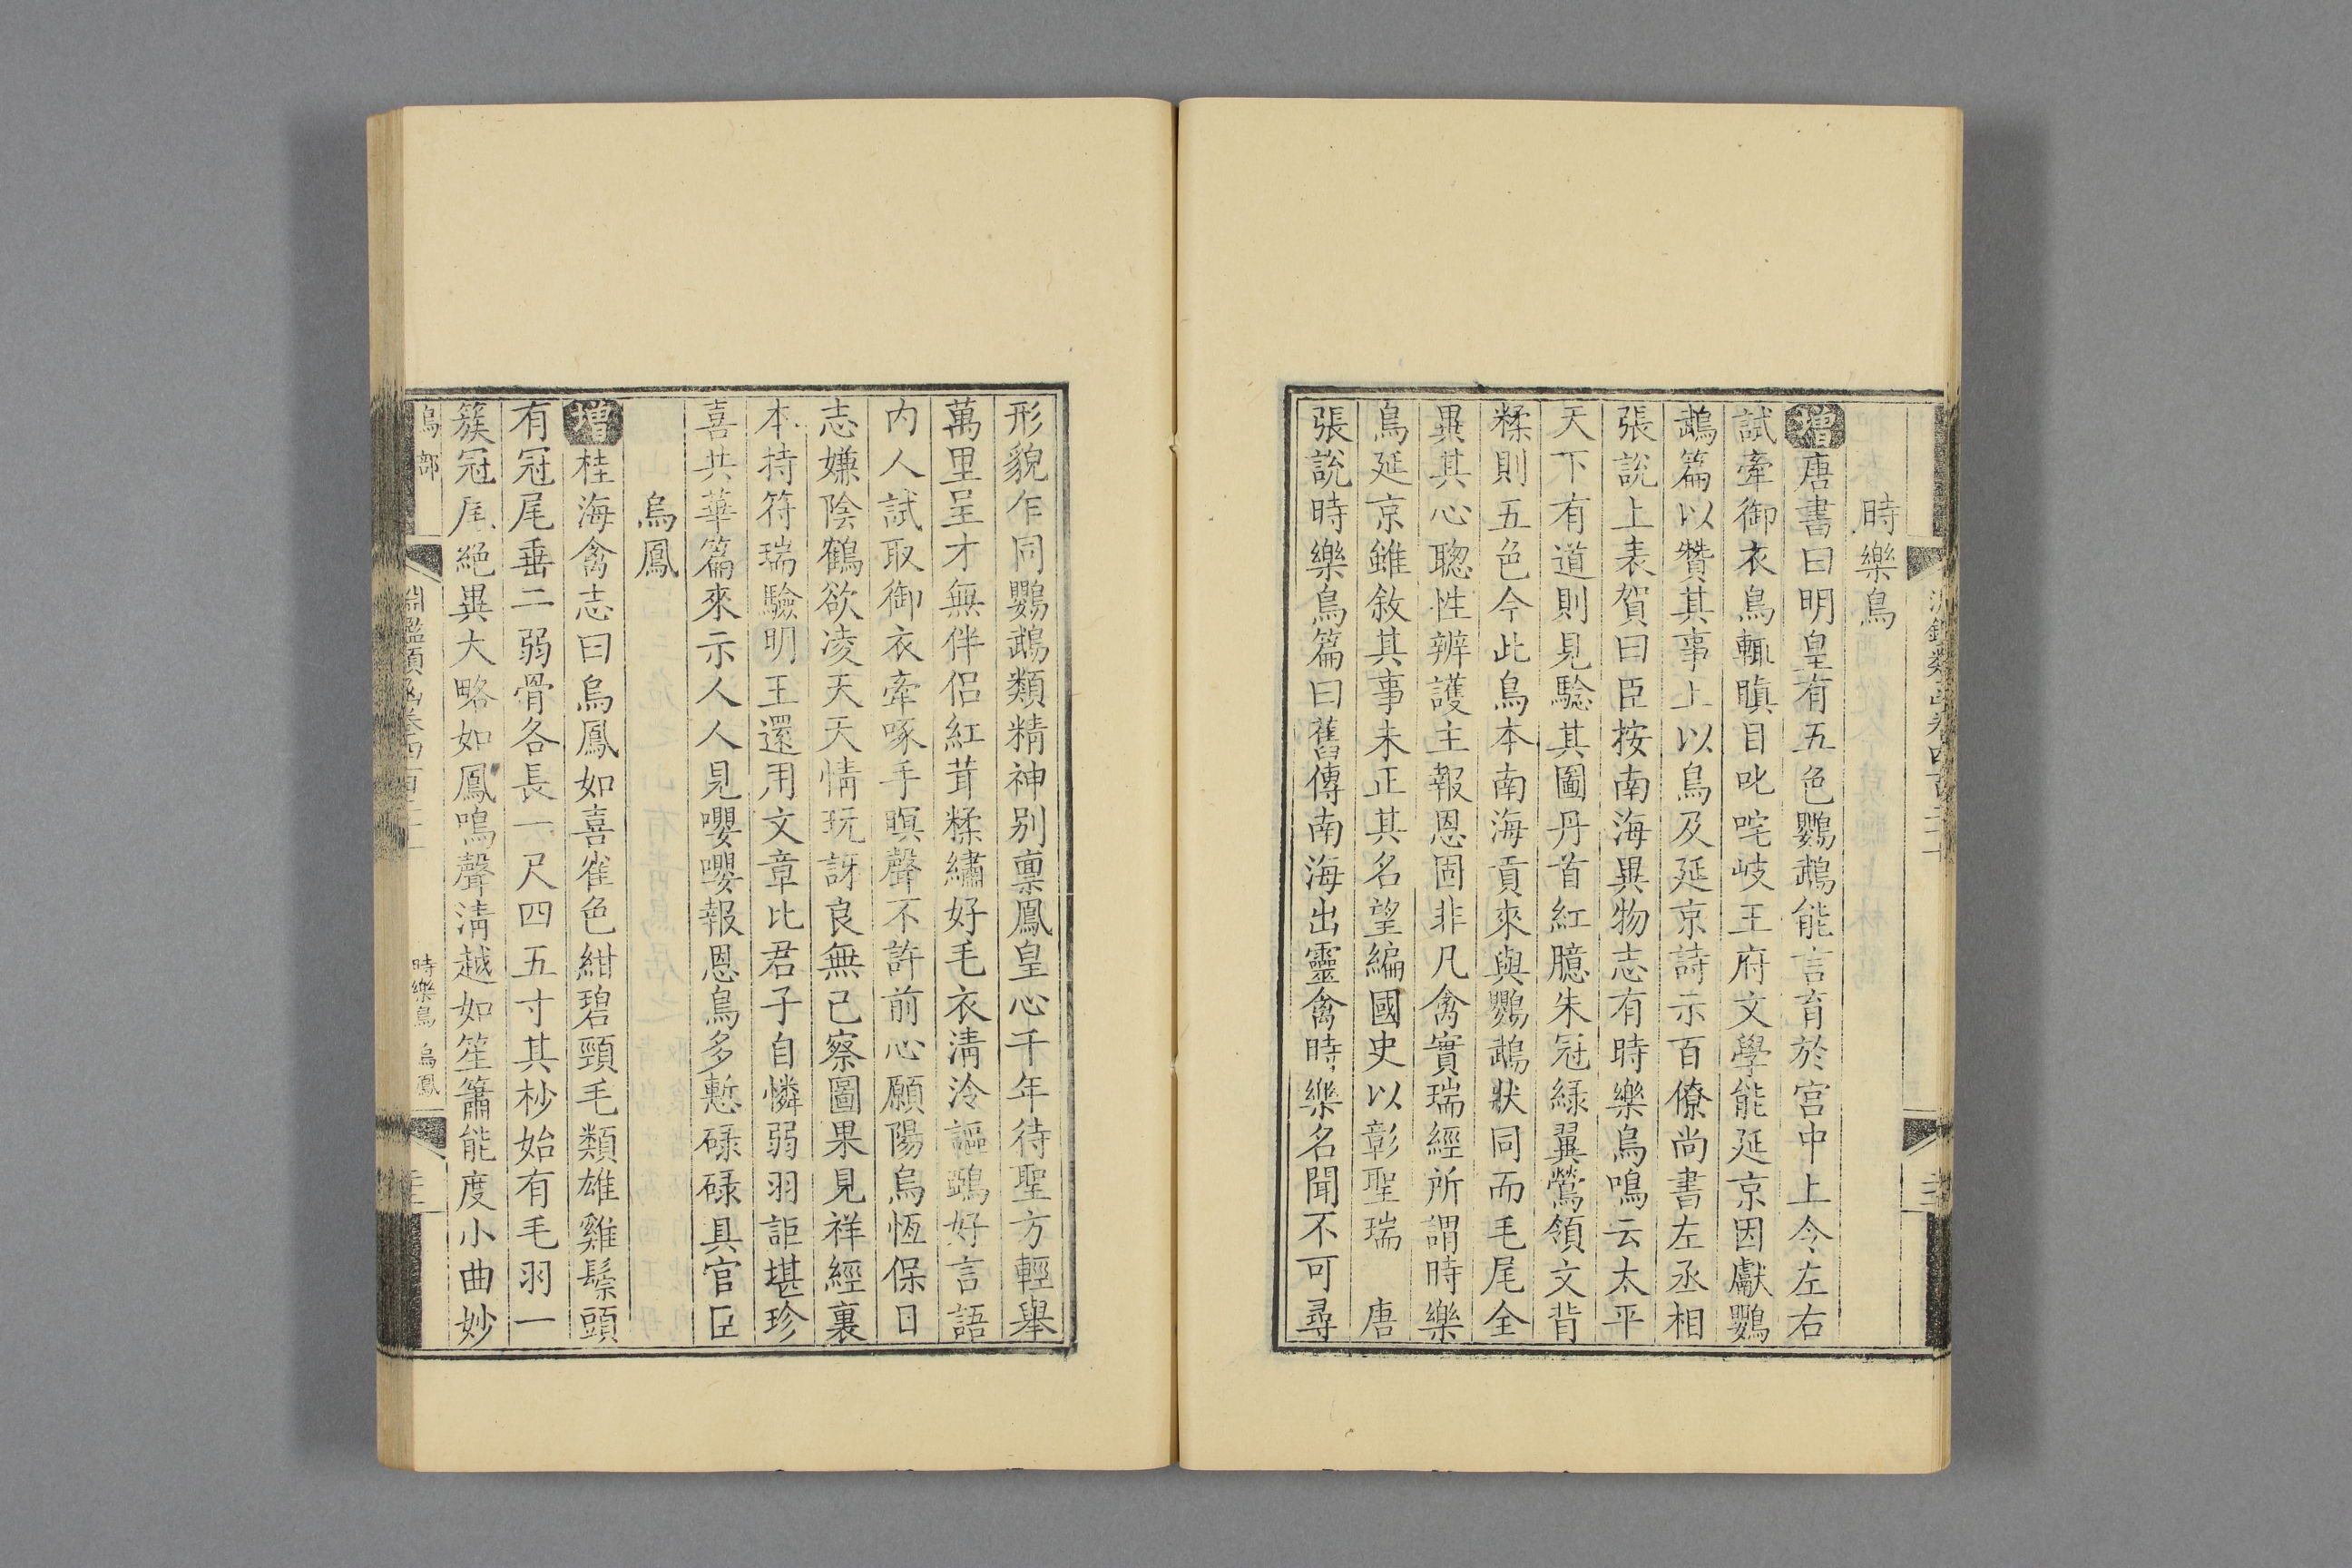 時樂鳥
增唐書曰明皇有五色鸚鵡能言育於宮中上令左右
試牽御衣鳥輒瞋目叱咤岐王府文學能延京因獻鸚
鵡篇以贊其事上以鳥及延京詩示百僚尚書左丞相
張說上表賀曰臣按南海異物志有時樂鳥鳴云太平
天下有道則見驗其圖丹首紅臆朱冠綠翼鶯領文背
糅則五色今此鳥本南海貢來與鸚鵡狀同而毛尾全
異其心聰性辨護主報恩固非凡禽實瑞經所謂時樂
鳥延京雖敘其事未正其名望編國史以彰聖瑞 唐
張說時樂鳥篇曰舊傳南海出靈禽時樂名聞不可尋
形貌乍同鸚鵡類精神別稟鳳皇心千年待聖方輕舉
萬里呈才無伴侶紅茸糅繡好毛衣清泠謳鵶好言語
內人試取御衣牽啄手瞑聲不許前心願陽烏恆保日
志嫌陰鶴欲凌天天情玩訝良無已察圖果見祥經裏
本持符瑞驗明王還用文章比君子自憐弱羽詎堪珍
喜共華篇來示人人見嚶嚶報恩鳥多慙碌碌具官臣
烏鳳
增桂海禽志曰烏鳳如喜雀色紺碧頸毛類雄雞鬃頭
有冠尾垂二弱骨各長一尺四五寸其杪始有毛羽一
簇冠尾絕異大略如鳳鳴聲清越如笙簫能度小曲妙
鳥部
淵鑑類函卷四百二十
時樂鳥 烏鳳